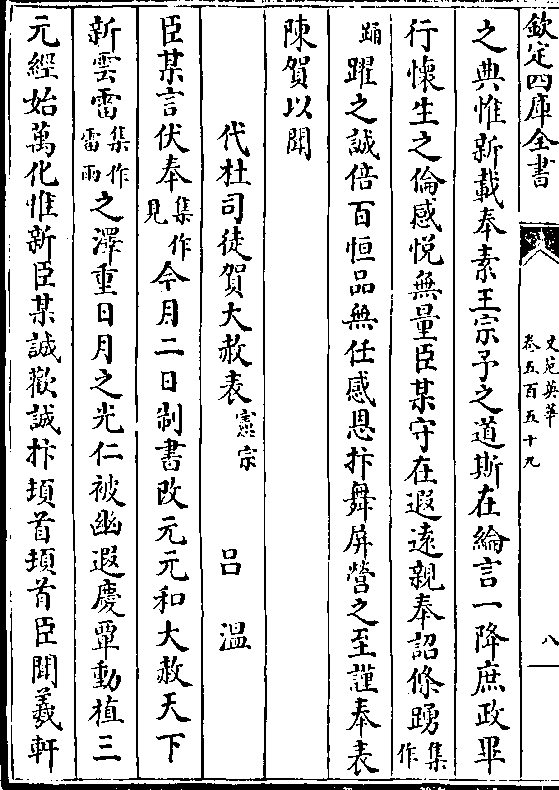 欽定四庫全書
文苑英華
卷五百五十九
八
之典惟新載奉素王宗予之道斯在綸言一降庶政畢
行懷生之倫感悦無量臣某守在遐遠親奉詔條踴集作
踊躍之誠倍百恒品無任感恩抃舞屏營之至謹奉表
陳賀以聞
代杜司徒賀大赦表憲宗 吕温
臣某言伏奉集作見今月二日制書改元元和大赦天下
新雲雷集作雷雨之澤重日月之光仁被幽遐慶覃動植三
元經始萬化惟新臣某誠歡誠抃頊首頊首臣聞羲軒